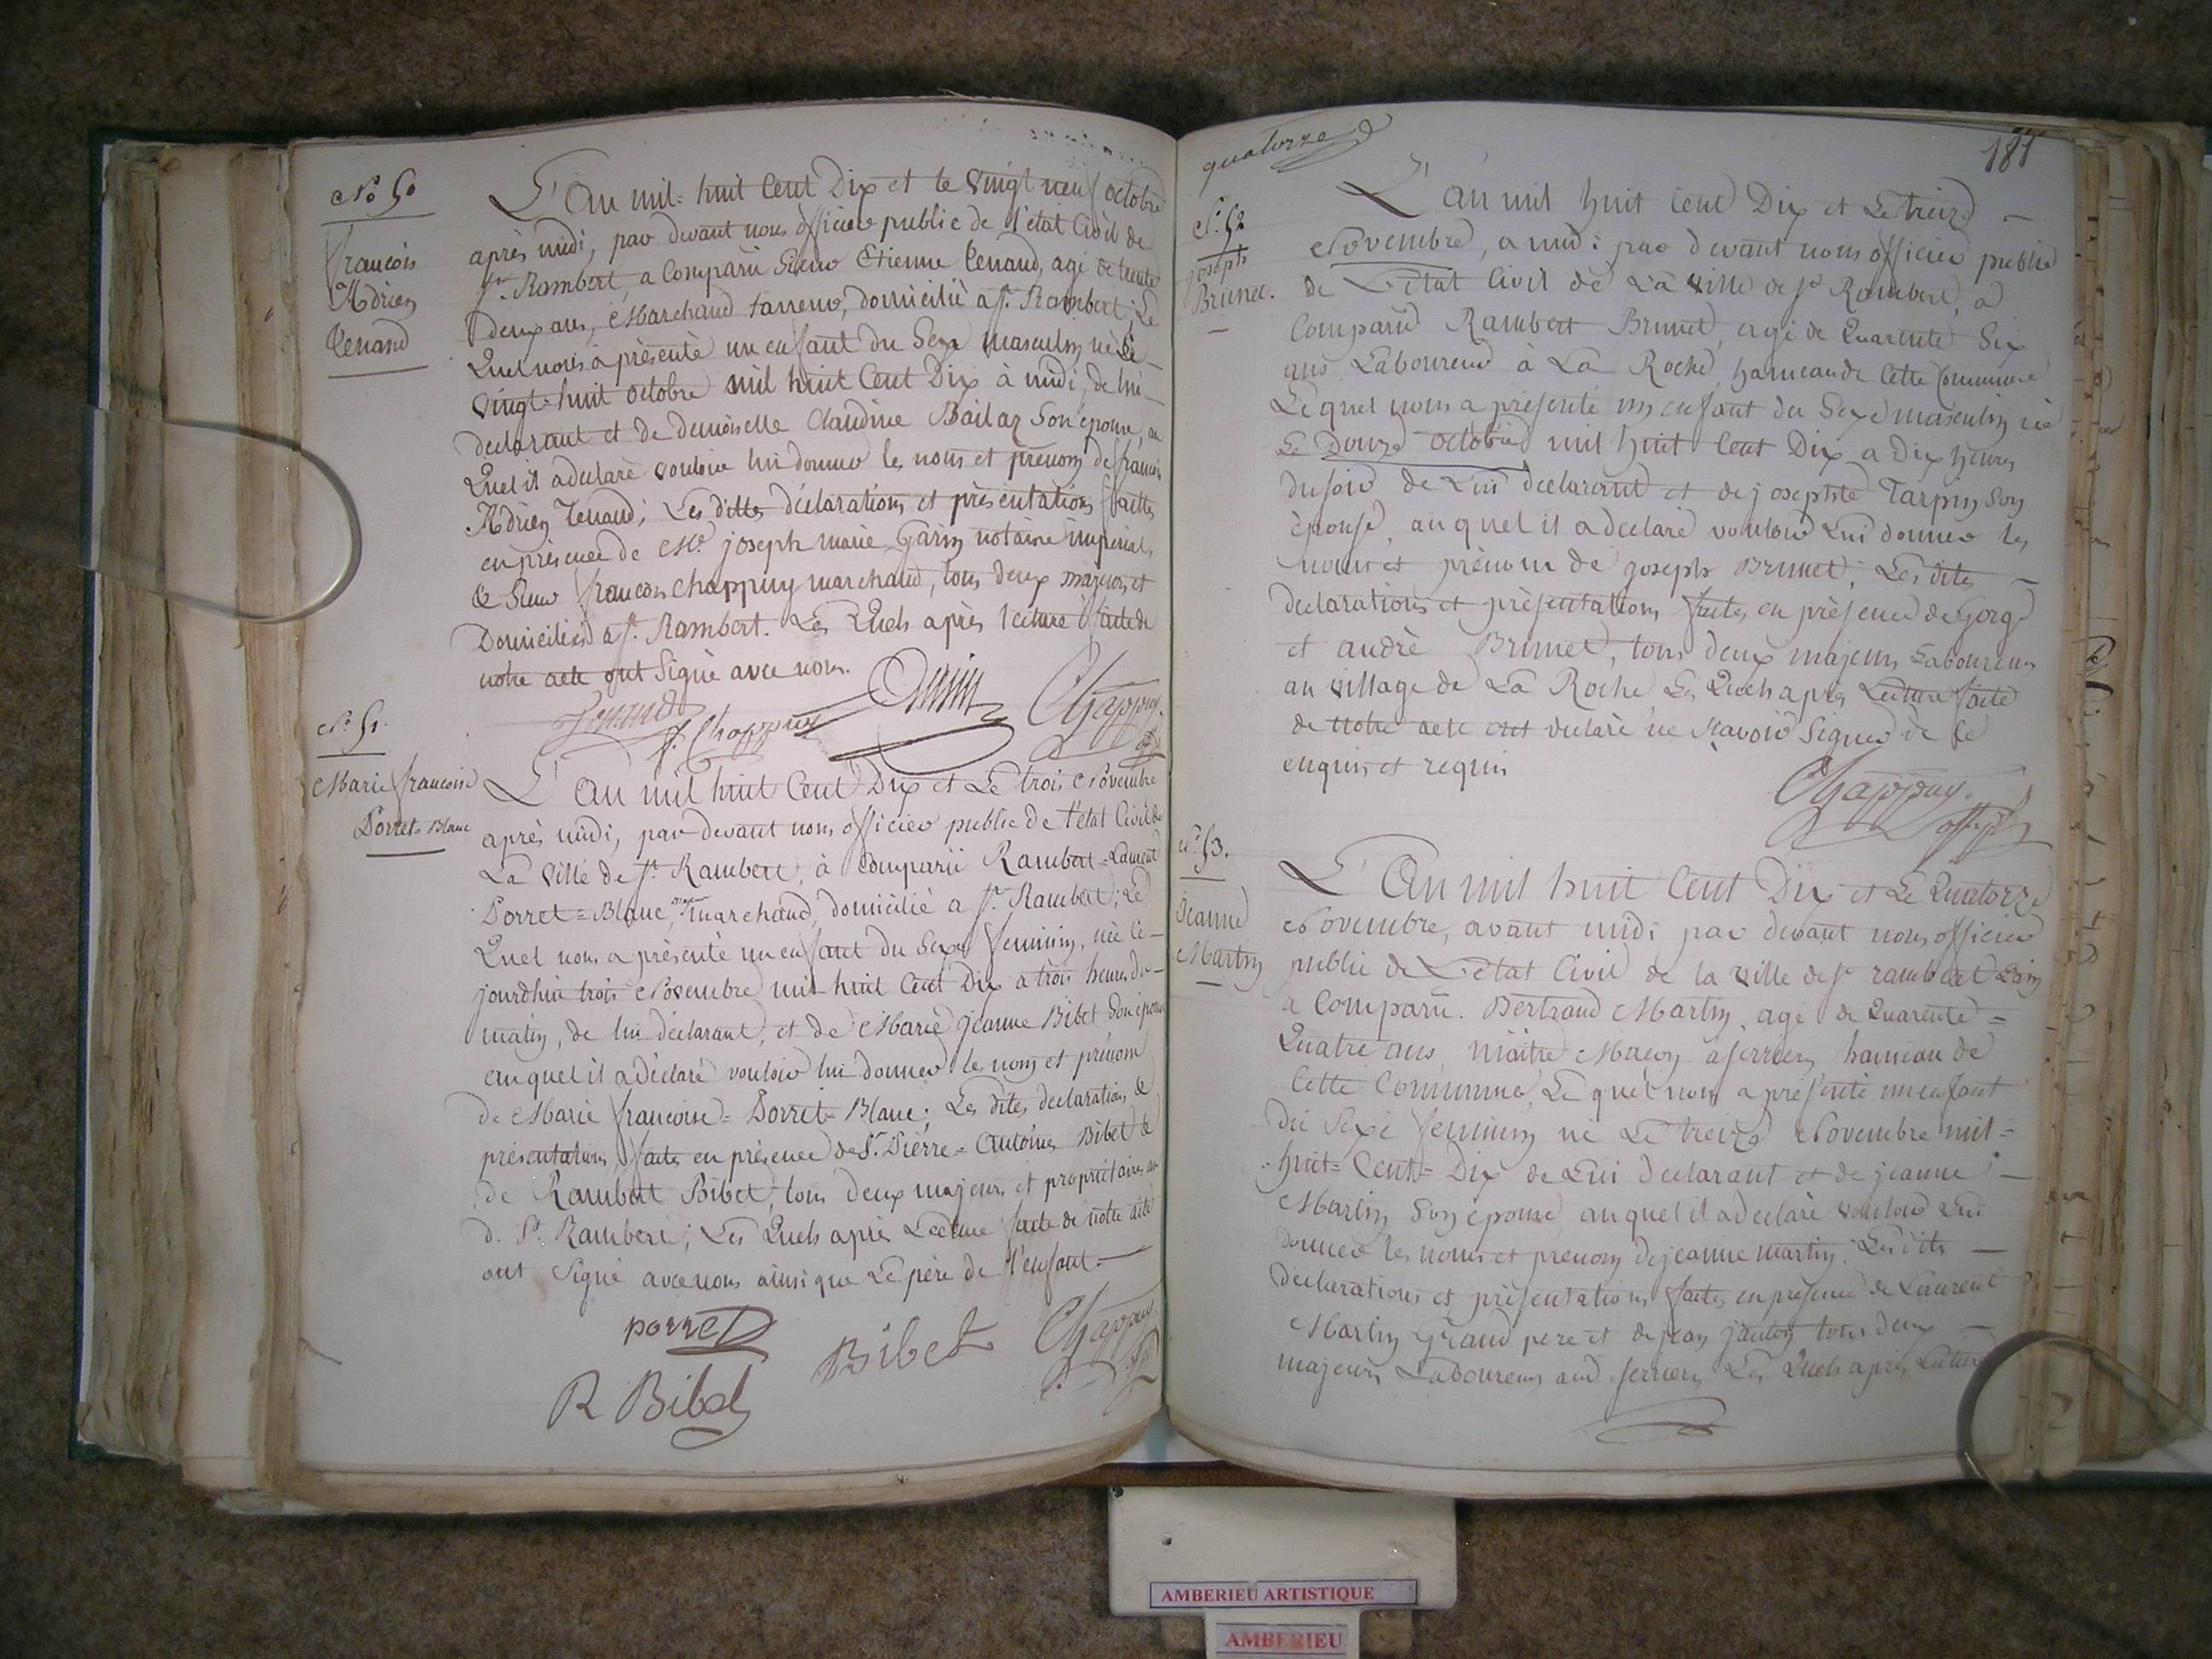 N.o 50
françois
Adrien
Tenand
L'An mil = huit Cent Dix et le vingt neuf octobre
après midi, par devant nous officier public de l'état Civil de
St. Rambert, a Comparû Sieur Etienne Tenand, agé de trente
deux ans, Marchand tanneur, domicilié à St. Rambert; Le
Quel nous à présenté un enfant du Sexe Masculin né Le
vingt-huit octobre mil huit Cent Dix à midi, de lui
declarant et de demoiselle Claudine Bailar Son épouse, au
Quel il a déclaré vouloir lui donner les noms et prénoms de françois
Adrien Tenand; Les dittes déclarations et présentations faittes
en présence de Me. joseph marie Garin notaire impérial,
& Sieur françois Chappuy marchand, tous deux majeurs et
Domiciliés à St. Rambert. Les Quels après lecture faite de
notre acte ont Signé avec nous.
Tenand
f. Chappuy
Chappuy.
N.o 51.
Marie françoise
Porret-Blanc
L'An mil huit Cent Dix et Le trois Novembre
après midi, par devant nous officier public de l'état Civil de
La ville de St. Rambert, à Comparû Rambert = Laurent
Porret = Blanc, marchand, domicilié a St. Rambert; Le
Quel nous a présenté un enfant du Sexe féminin, née Ce-
jourdhui trois Novembre mil huit Cent Dix a trois heures du-
matin, de lui déclarant, et de Marie jeanne Bibet Son épouse
auquel il a déclaré vouloir lui donner les nom et prénom
de Marie françoise = Porret = Blanc; Les dites declarations &
présentations, faites en présence de Sr. Pierre = Antoine Bibet &
de Rambert Bibet, tous deux majeurs et propriétaires au
d. St. Rambert; Les Quels après Lecture faite de notre acte
ont Signé avec nous ainsi que Le père de l'enfant. =
porret
Bibet
Chappuy.
R Bibet
quatorze
187
N.o 52
joseph
Brunet.
L'An mil huit Cent Dix et Le treize —
Novembre, a midi par devant nous officier public
de L'état Civil de La ville de St Rambert, a
Comparû Rambert Brunet, agé de Quarente Six
ans Laboureur à La Roche, hameau de Cette Commune
Le quel nous a présenté un enfant du Sexe masculin né
Le Douze octobre mil huit Cent Dix a Dix heures
du soir de Lui declarant et de josephte Tarpin Son
épouse, auquel il a declaré vouloir Lui donner les
noms et prénom de joseph Brunet; Les dites —
declarations et présentations faites en présence de Gorge
et andré Brunet, tous deux majeurs Laboureurs
au village de La Roche Les Quels après Lecture faite
de notre acte ont declaré ne Savoir Signer de ce
enquis et requis
Chappuy.
N.o 53.
Jeanne
Martin
L'An mil huit Cent Dix et Le Quatorze
Novembre, avant midi par devant nous officier
public de L'état Civil de la ville de St rambert Lain
a Comparû. Bertrand Martin, agé de Quarente =
Quatre ans, maître Maçon à serrieres hameau de
Cette Commune, Le quel nous a présenté un enfant
du Sexe feminin né Le treize Novembre mil =
huit = Cent = Dix de Lui declarant et de jeanne —
Martin Son épouse auquel il a declaré vouloir Lui
donner les noms et prenom de jeanne martin. Les dits —
declarations et présentations faites en présence de Laurent
Martin Grand pere et de jean jantet tous deux —
majeurs Laboureurs aud. serrieres Les Quels après Lecture
AMBERIEU ARTISTIQUE
AMBERIEU